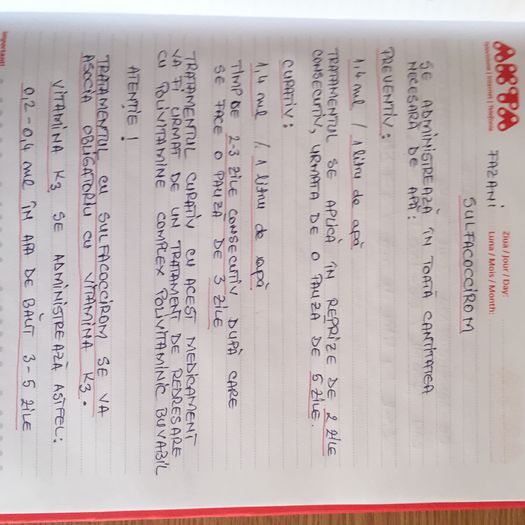 Ziua / Jour / Day:
Luna / Mois / Month:
FAZANI
SULFACOCCIROM
SE ADMINISTREAZĂ ÎN TOATĂ CANTITATEA
NECESARĂ DE APĂ:
PREVENTIV:
1,4 ml / 1 litru de apă
TRATAMENTUL SE APLICĂ ÎN REPRIZE DE 2 ZILE
CONSECUTIV, URMATĂ DE O PAUZĂ DE 5 ZILE.
CURATIV:
1,4 ml / 1 litru de apă
TIMP DE 2-3 ZILE CONSECUTIV, DUPĂ CARE
SE FACE O PAUZĂ DE 3 ZILE
TRATAMENTUL CURATIV CU ACEST MEDICAMENT
VA FI URMAT DE UN TRATAMENT DE REDRESARE
CU POLIVITAMINE COMPLEX POLIVITAMINIC BUVABIL
ATENȚIE!
TRATAMENTUL CU SULFACOCCIROM SE VA
ASOCIA OBLIGATORIU CU VITAMINA K3.
VITAMINA K3 SE ADMINISTREAZĂ ASTFEL:
0,2-0,4 ml ÎN APA DE BĂUT 3-5 ZILE
important!